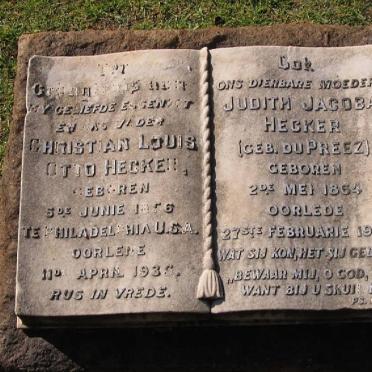 MY GELIEFDE EGGENOOT
EN ONS VADER
CHRISTIAN LOUIS
OTTO HECKER,
GEBOREN
5DE JUNIE 1856
TE PHILADELPHIA U.S.A.
OORLEDE
11DE APRIL 193
RUS IN VREDE.
OOK
ONS DIERBARE MOEDER
JUDITH JACOBA
HECKER
(GEB. DU PREEZ)
GEBOREN
2DE MEI 1864
OORLEDE
27STE FEBRUARIE 19
WAT SIJ KON, HET SIJ GED
"BEWAAR MIJ, O GOD,
WANT BIJ U SKUIL
PS.